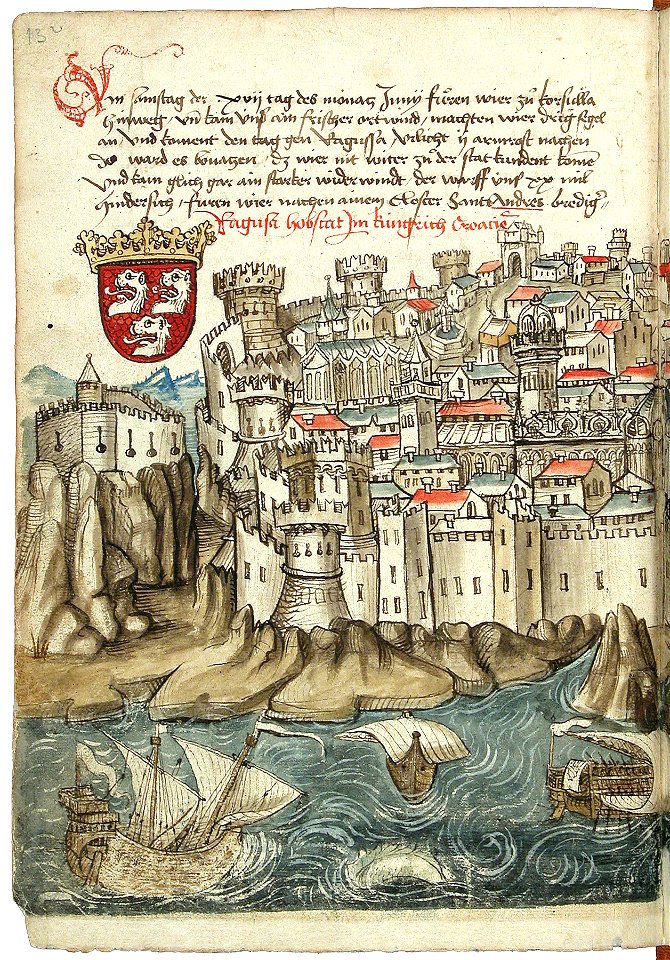 13
Am samstag der xvij tag des monatz Junÿ fůren wier zů korsulla
hinweg / vnd kam vnß ain frischer ort wind / machten wier drÿg segel
an / vnd kament den tag gen Ragussa vilicht ij armrost nachen
do ward es bonatzen / dz wier nit witer zů der stat kundent komē
Vnd kam glich gar ain starker wider windt der warff vnß xx mil
hindersich / furen wier nachen ainem Closter Sant Andres bredig
Ragusi hobstat Jm küngrich Croacie